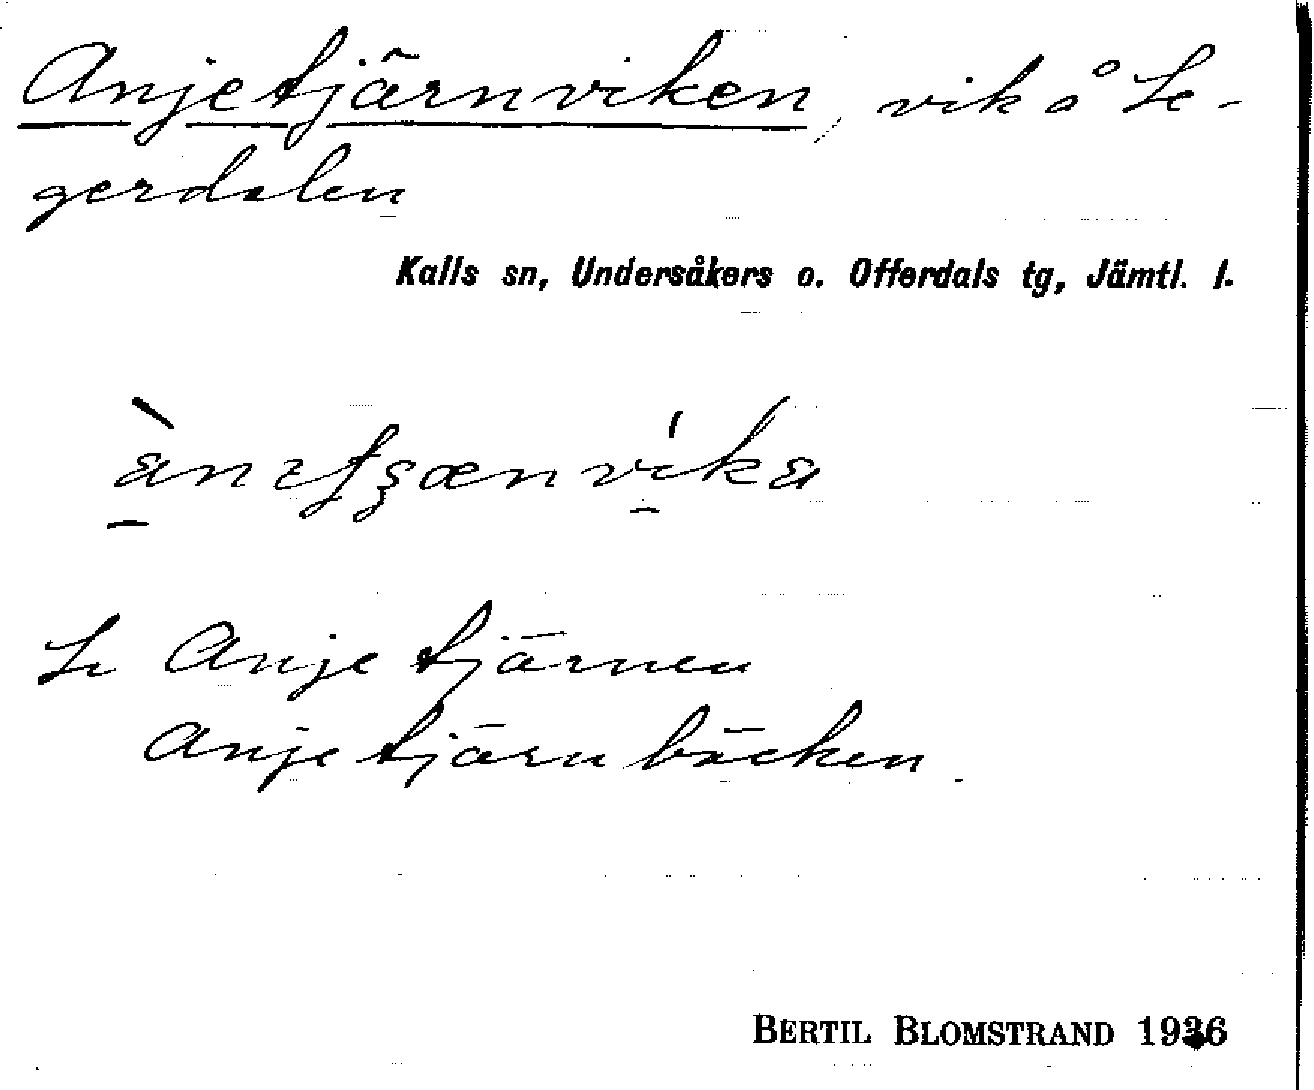 Anjetjärnviken, vik å Le-
gerdalen
Kalls sn, Undersåkers o. Offerdals tg, Jämtl. l.
Anje tjärnen
Anje tjärnbäcken.
BERTIL BLOMSTRAND 1936